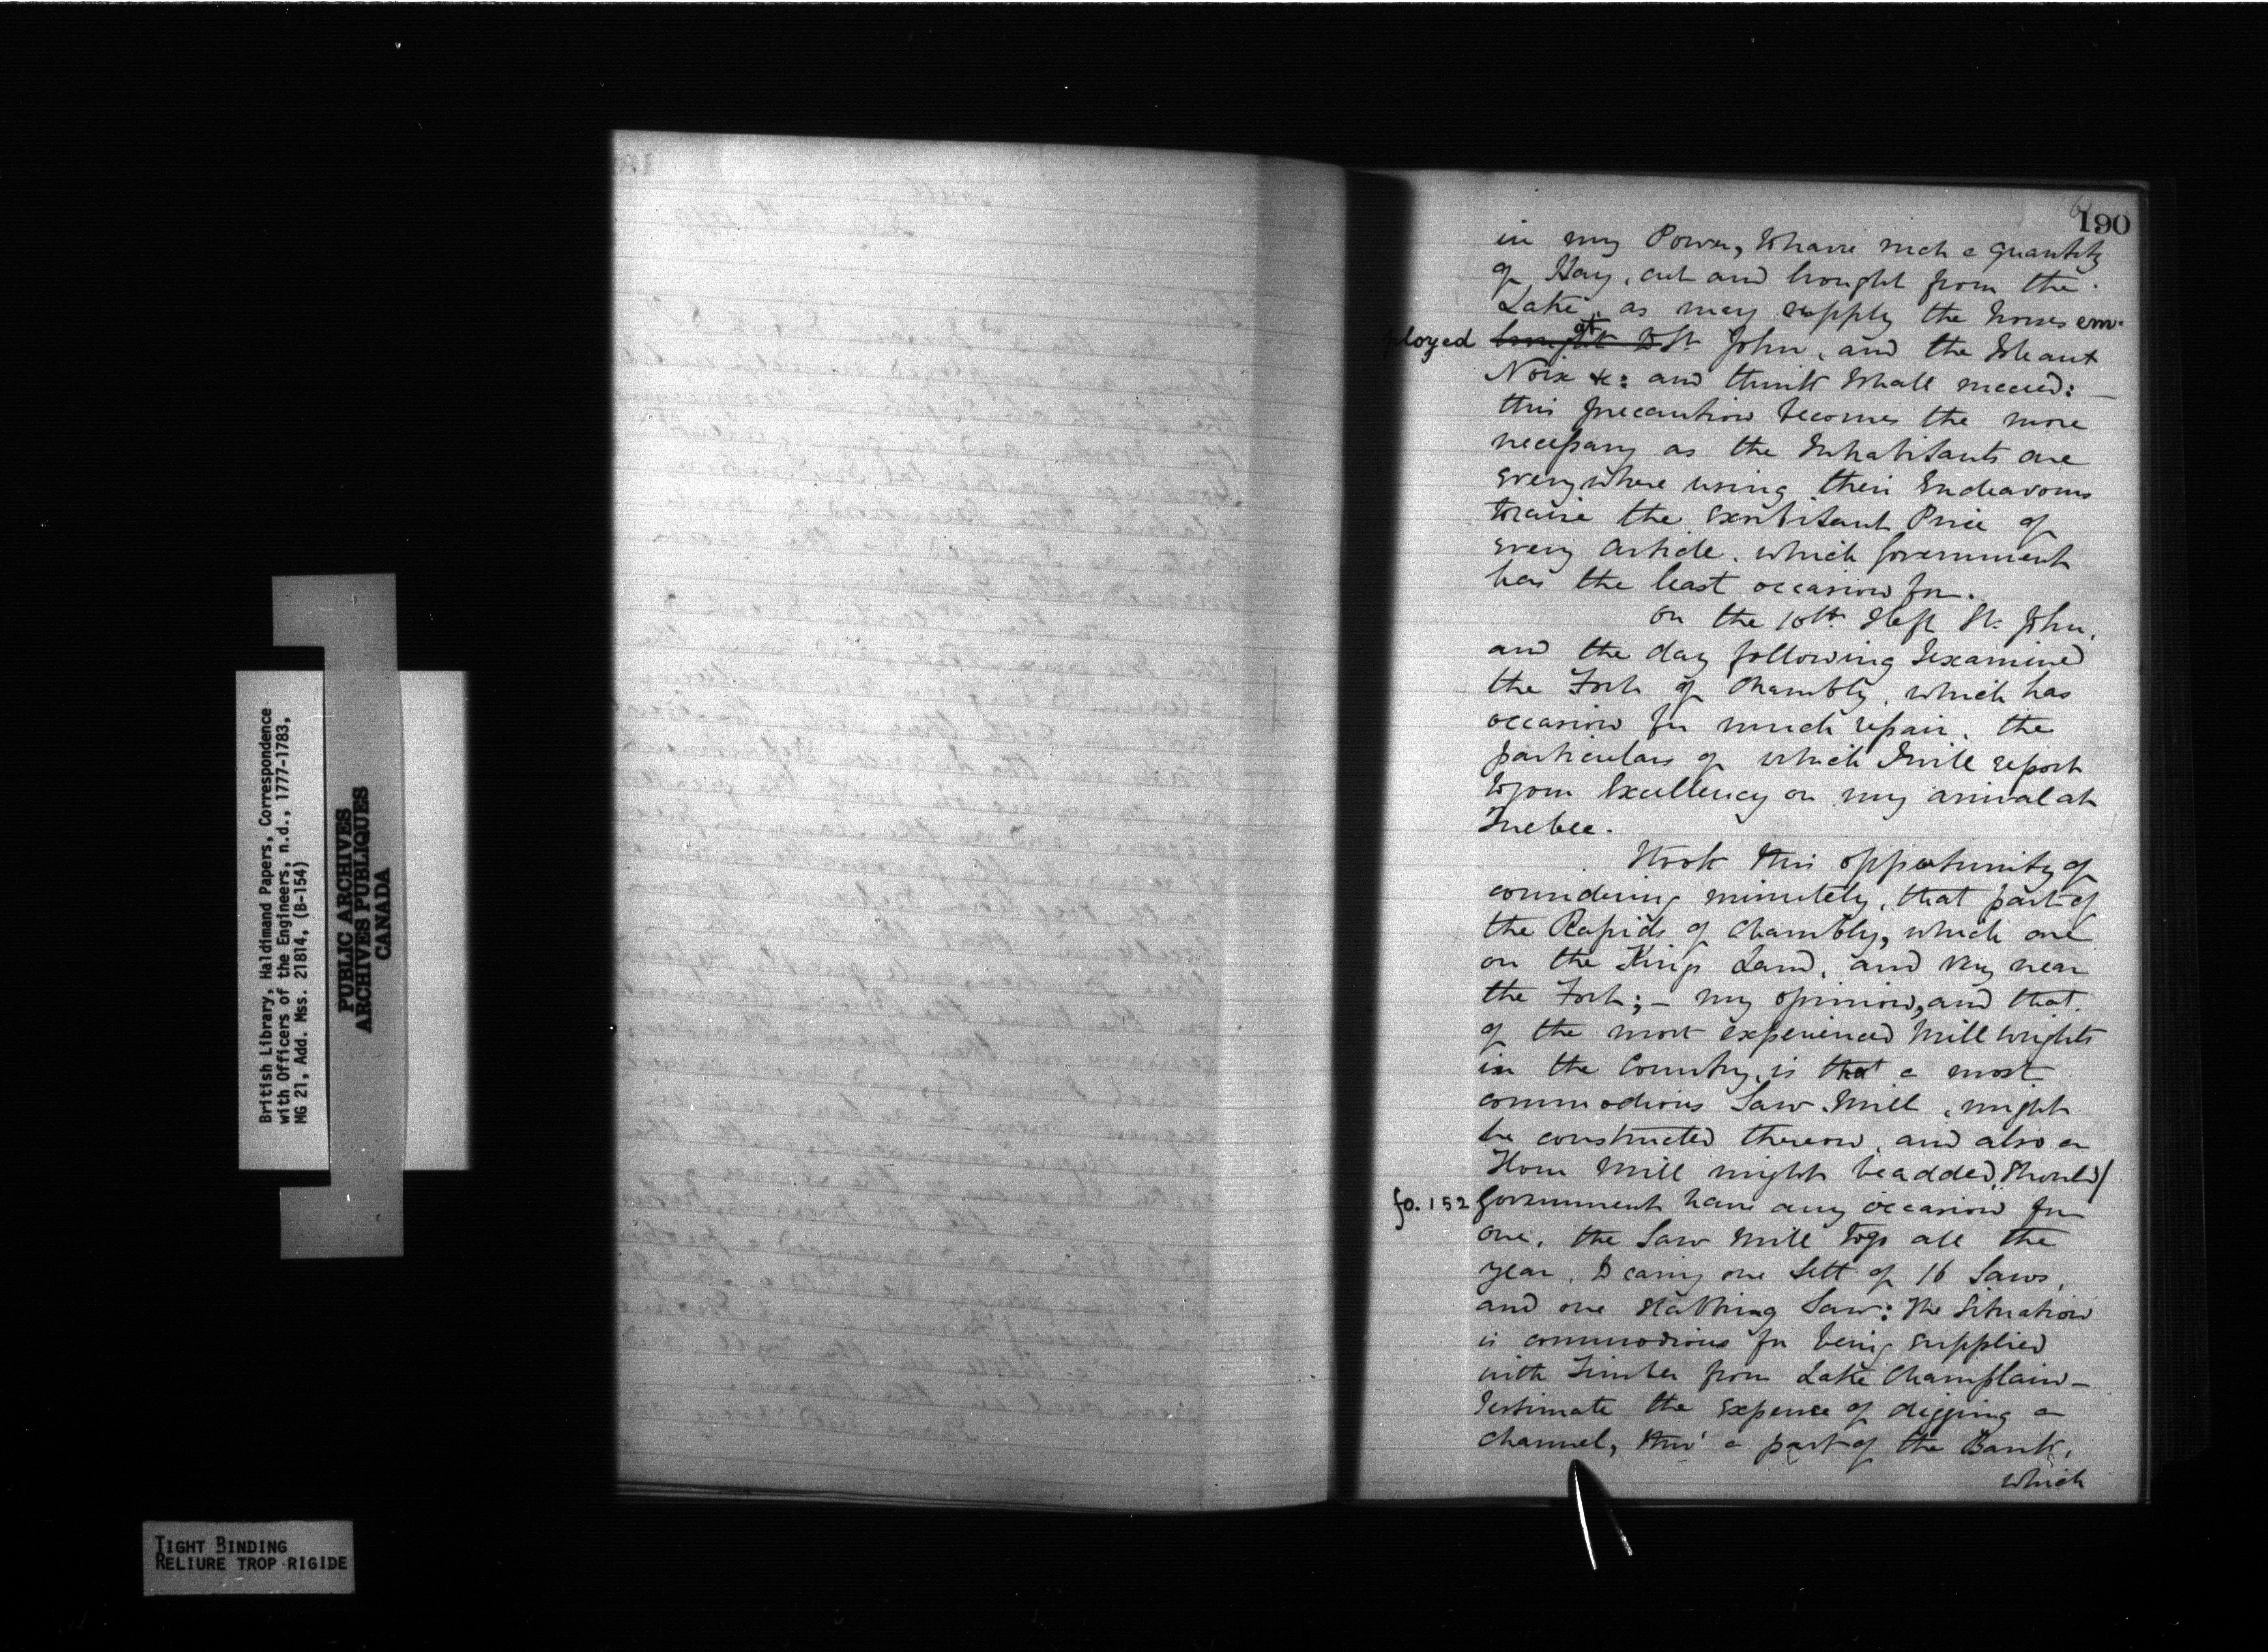 British Library, Haldimand Papers, Correspondence
with Officers of the Engineers, n.d., 1777-1783,
MG 21, Add. Mss. 21814, (B-154)
PUBLIC ARCHIVES
ARCHIVES PUBLIQUES
CANADA
TIGHT BINDING
RELIURE TROP RIGIDE
190
in my Power, to have such a quantity
of Hay, cut and brought from the
Lake, as may supply the horses em-
ployed brought to at St. John, and the Isle aux
Noix &c: and think I shall succeed: —
this precaution becomes the more
necessary as the Inhabitants are
everywhere using their Endeavours
to raise the exorbitant Price of
every Article, which Government
has the least occasion for.
On the 10th I left St. John,
and the day following I examined
the Fort of Chambly, which has
occasion for much repair, the
particulars of which I will report
to your Excellency on my arrival at
Quebec.
I took this opportunity of
considering minutely, that part of
the Rapids of Chambly, which are
on the Kings Land, and very near
the Fort; — my opinion, and that
of the most experienced Mill wrights
in the Country, is that a most
commodious Saw Mill, might
be constructed thereon, and also a
Flour Mill might be added, should/
fo. 152 Government have any occasion for
one, the Saw Mill to go all the
year, to carry one Sett of 16 Saws,
and one slabbing Saw: The Situation
is commodious for being supplied
with Timber from Lake Champlain —
I estimate the Expense of digging a
Channel, thro' a part of the Bank,
which